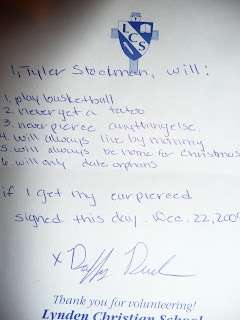 LCS
I, Tyler Stockman, will:
1. play busketball
2. never get a tatoo
3. never pierce anything else.
4. will always live by mommy
5. will always be home for Christmas
6. will only date orphans
if I get my ear piereced
signed this day. Dec. 22, 2009
x Daffy Duck
Thank you for volunteering!
Lynden Christian School